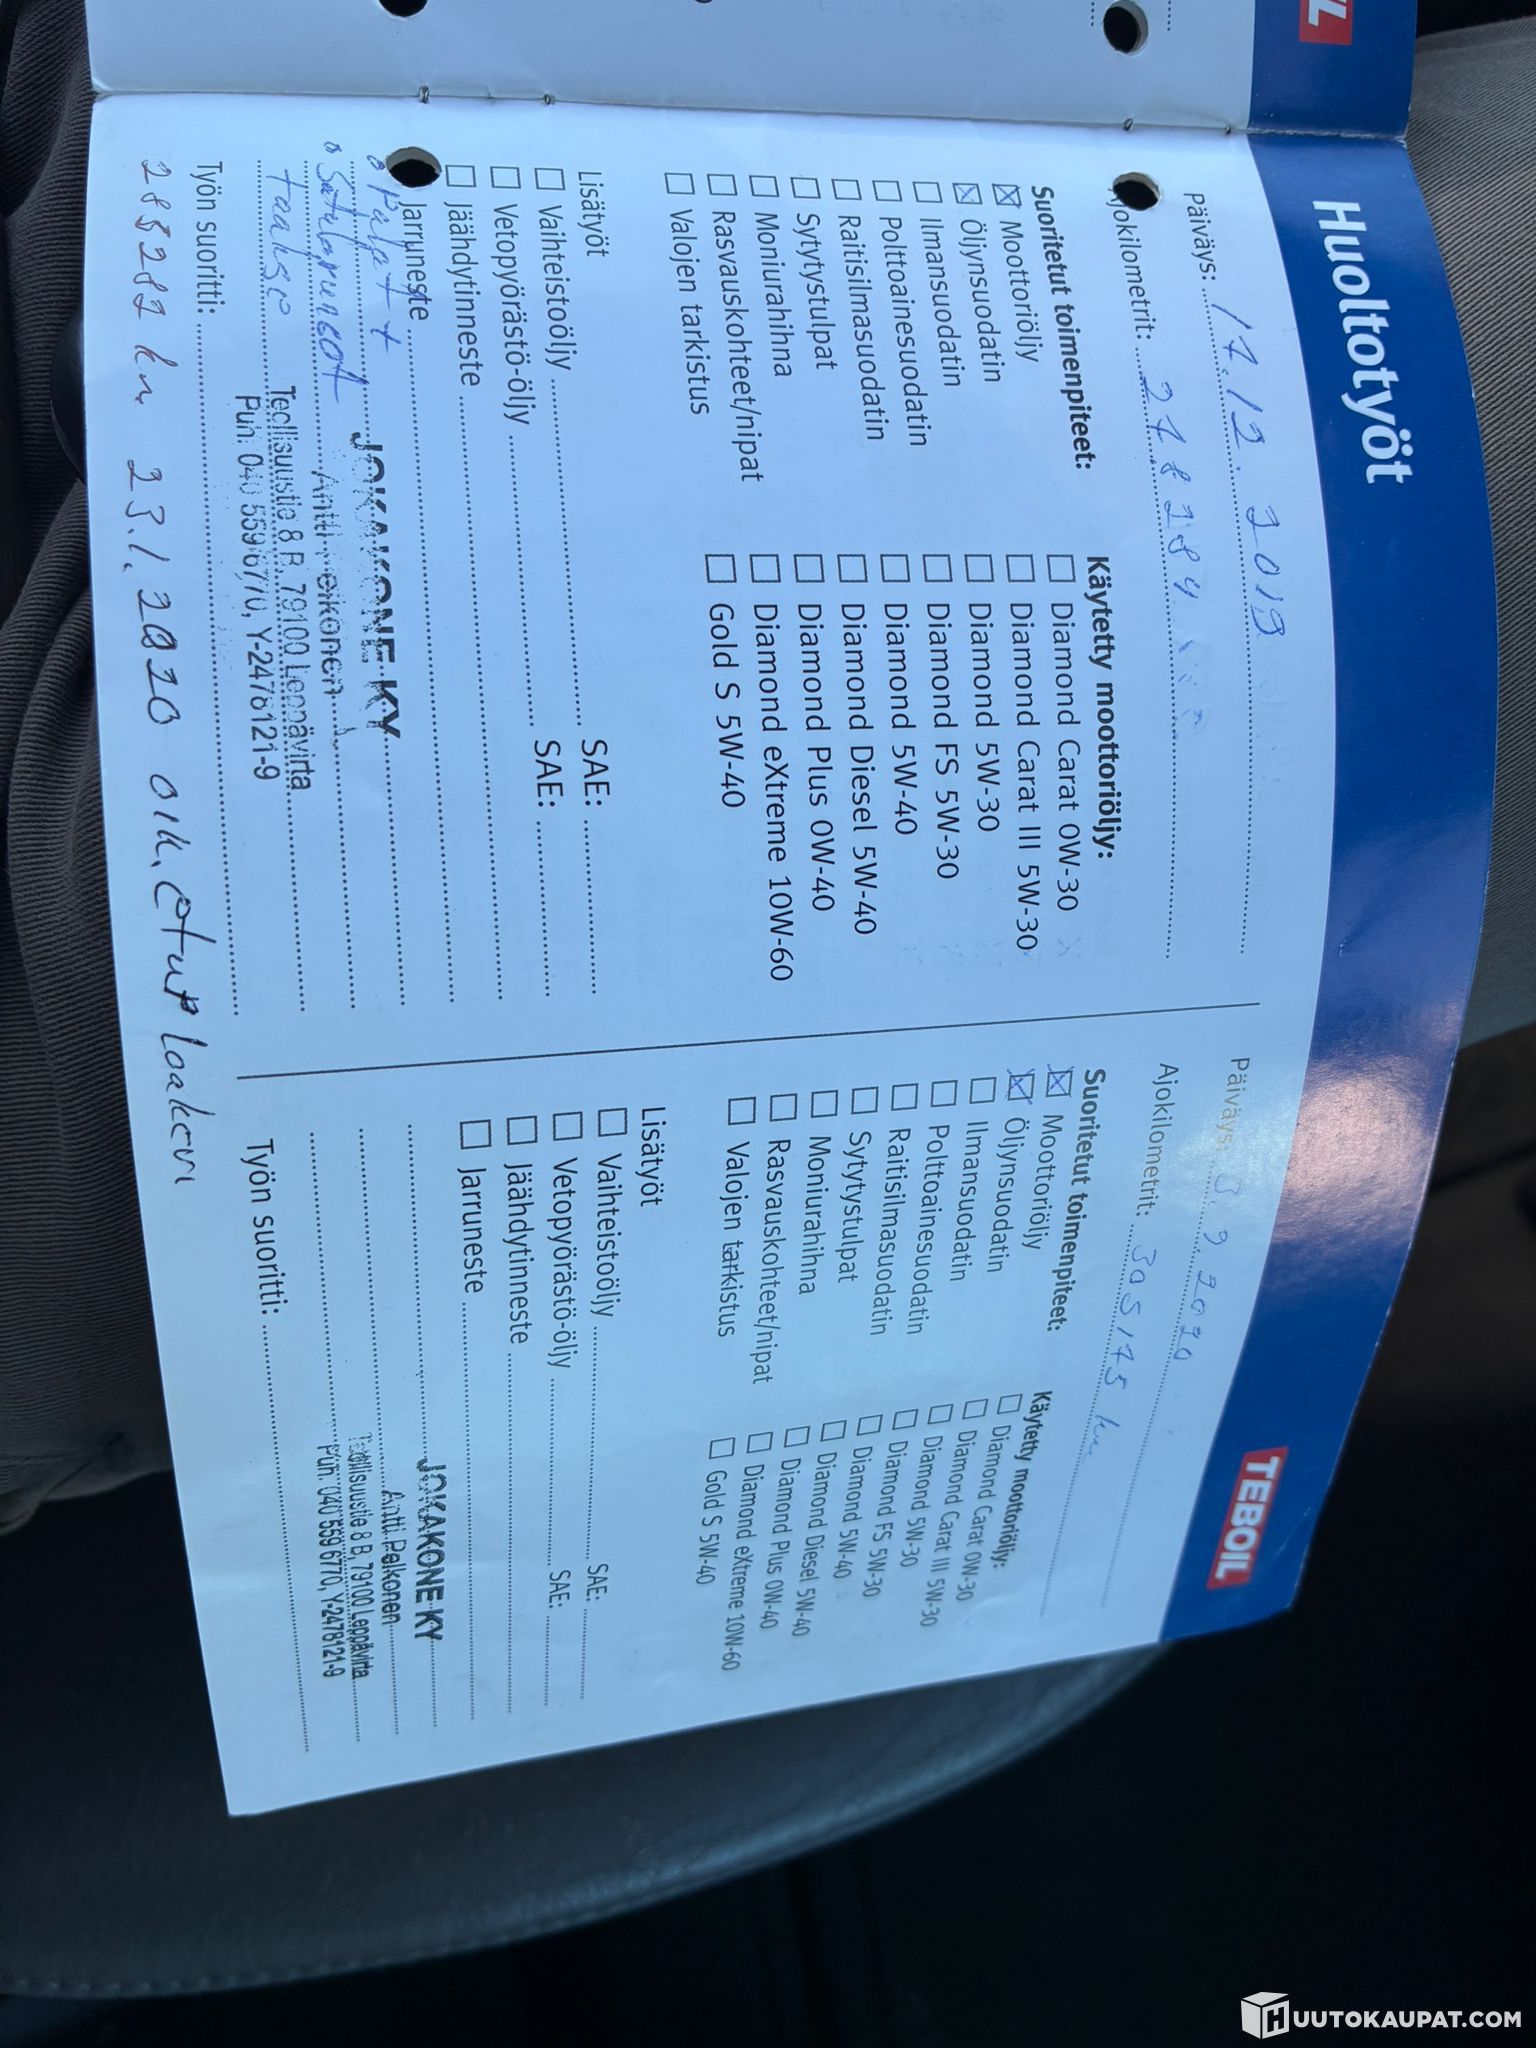 Huoltotyöt
TEBOIL
Päiväys: 17.12.2019
Ajokilometrit: 278284
Suoritetut toimenpiteet:
☒ Moottoriöljy
☒ Öljynsuodatin
☐ Ilmansuodatin
☐ Polttoainesuodatin
☐ Raitisilmasuodatin
☐ Sytytystulpat
☐ Moniurahihna
☐ Rasvauskohteet/nipat
☐ Valojen tarkistus
Käytetty moottoriöljy:
☐ Diamond Carat 0W-30
☐ Diamond Carat III 5W-30
☐ Diamond 5W-30
☐ Diamond FS 5W-30
☐ Diamond 5W-40
☐ Diamond Diesel 5W-40
☐ Diamond Plus 0W-40
☐ Diamond eXtreme 10W-60
☐ Gold S 5W-40
Lisätyöt
☐ Vaihteistoöljy SAE:
☐ Vetopyörästö-öljy SAE:
☐ Jäähdytinneste
Jarruneste
Palat +
Satularungot
taakse
JOKAKONE KY
Antti Pelkonen
Teollisuustie 8 B, 79100 Leppävirta
Puh. 040 559 6770, Y-2478121-9
Työn suoritti:
288282 km 23.1.2020 oik. etup laakeri
Päiväys: 3.9.2020
Ajokilometrit: 305175 km
Suoritetut toimenpiteet:
☒ Moottoriöljy
☒ Öljynsuodatin
☐ Ilmansuodatin
☐ Polttoainesuodatin
☐ Raitisilmasuodatin
☐ Sytytystulpat
☐ Moniurahihna
☐ Rasvauskohteet/nipat
☐ Valojen tarkistus
Käytetty moottoriöljy:
☐ Diamond Carat 0W-30
☐ Diamond Carat III 5W-30
☐ Diamond 5W-30
☐ Diamond FS 5W-30
☐ Diamond 5W-40
☐ Diamond Diesel 5W-40
☐ Diamond Plus 0W-40
☐ Diamond eXtreme 10W-60
☐ Gold S 5W-40
Lisätyöt
☐ Vaihteistoöljy SAE:
☐ Vetopyörästö-öljy SAE:
☐ Jäähdytinneste
☐ Jarruneste
JOKAKONE KY
Antti Pelkonen
Teollisuustie 8 B, 79100 Leppävirta
Puh. 040 559 6770, Y-2478121-9
Työn suoritti:
HUUTOKAUPAT.COM